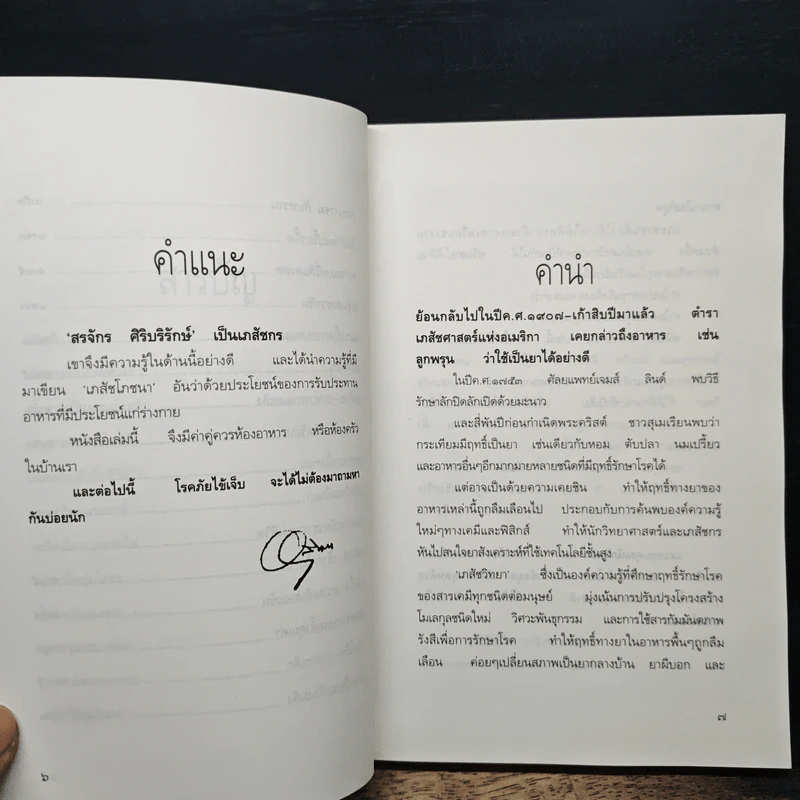 คำแนะ
'สรจักร ศิริบริรักษ์' เป็นเภสัชกร
เขาจึงมีความรู้ในด้านนี้อย่างดี และได้นำความรู้ที่มี
มาเขียน 'เภสัชโภชนา' อันว่าด้วยประโยชน์ของการรับประทาน
อาหารที่มีประโยชน์แก่ร่างกาย
หนังสือเล่มนี้ จึงมีค่าคู่ควรห้องอาหาร หรือห้องครัว
ในบ้านเรา
และต่อไปนี้ โรคภัยไข้เจ็บ จะได้ไม่ต้องมาถามหา
กันบ่อยนัก
๖
คำนำ
ย้อนกลับไปในปีค.ศ.๑๙๐๗-เก้าสิบปีมาแล้ว ตำรา
เภสัชศาสตร์แห่งอเมริกา เคยกล่าวถึงอาหาร เช่น
ลูกพรุน ว่าใช้เป็นยาได้อย่างดี
ในปีค.ศ.๑๗๕๓ ศัลยแพทย์เจมส์ ลินด์ พบวิธี
รักษาลักปิดลักเปิดด้วยมะนาว
และสี่พันปีก่อนกำเนิดพระคริสต์ ชาวสุเมเรียนพบว่า
กระเทียมมีฤทธิ์เป็นยา เช่นเดียวกับหอม ตับปลา นมเปรี้ยว
และอาหารอื่นๆอีกมากมายหลายชนิดที่มีฤทธิ์รักษาโรคได้
แต่อาจเป็นด้วยความเคยชิน ทำให้ฤทธิ์ทางยาของ
อาหารเหล่านี้ถูกลืมเลือนไป ประกอบกับการค้นพบองค์ความรู้
ใหม่ๆทางเคมีและฟิสิกส์ ทำให้นักวิทยาศาสตร์และเภสัชกร
หันไปสนใจยาสังเคราะห์ที่ใช้เทคโนโลยีชั้นสูง
'เภสัชวิทยา' ซึ่งเป็นองค์ความรู้ที่ศึกษาฤทธิ์รักษาโรค
ของสารเคมีทุกชนิดต่อมนุษย์ มุ่งเน้นการปรับปรุงโครงสร้าง
โมเลกุลชนิดใหม่ วิศวะพันธุกรรม และการใช้สารกัมมันตภาพ
รังสีเพื่อการรักษาโรค ทำให้ฤทธิ์ทางยาในอาหารพื้นๆถูกลืม
เลือน ค่อยๆเปลี่ยนสภาพเป็นยากลางบ้าน ยาผีบอก และ
๗